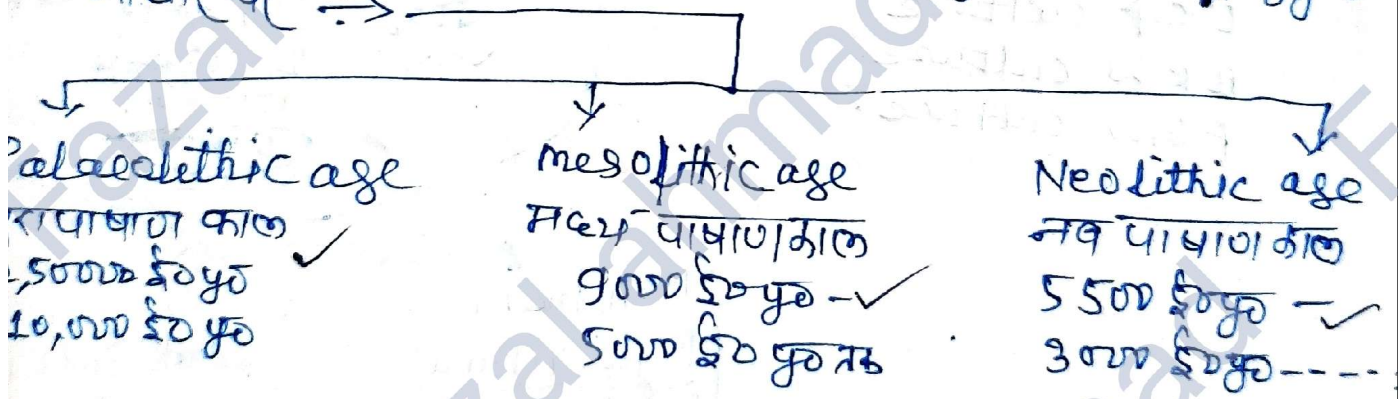 Palaeolethic age
रापाषाण काल
,50000 ई० पू०
10,000 ई० पू०
mesolithic age
मध्य पाषाण काल
9000 ई० पू० -✓
5000 ई० पू० तक
Neolithic age
नव पाषाण काल
5500 ई० पू० -✓
3000 ई० पू० ----